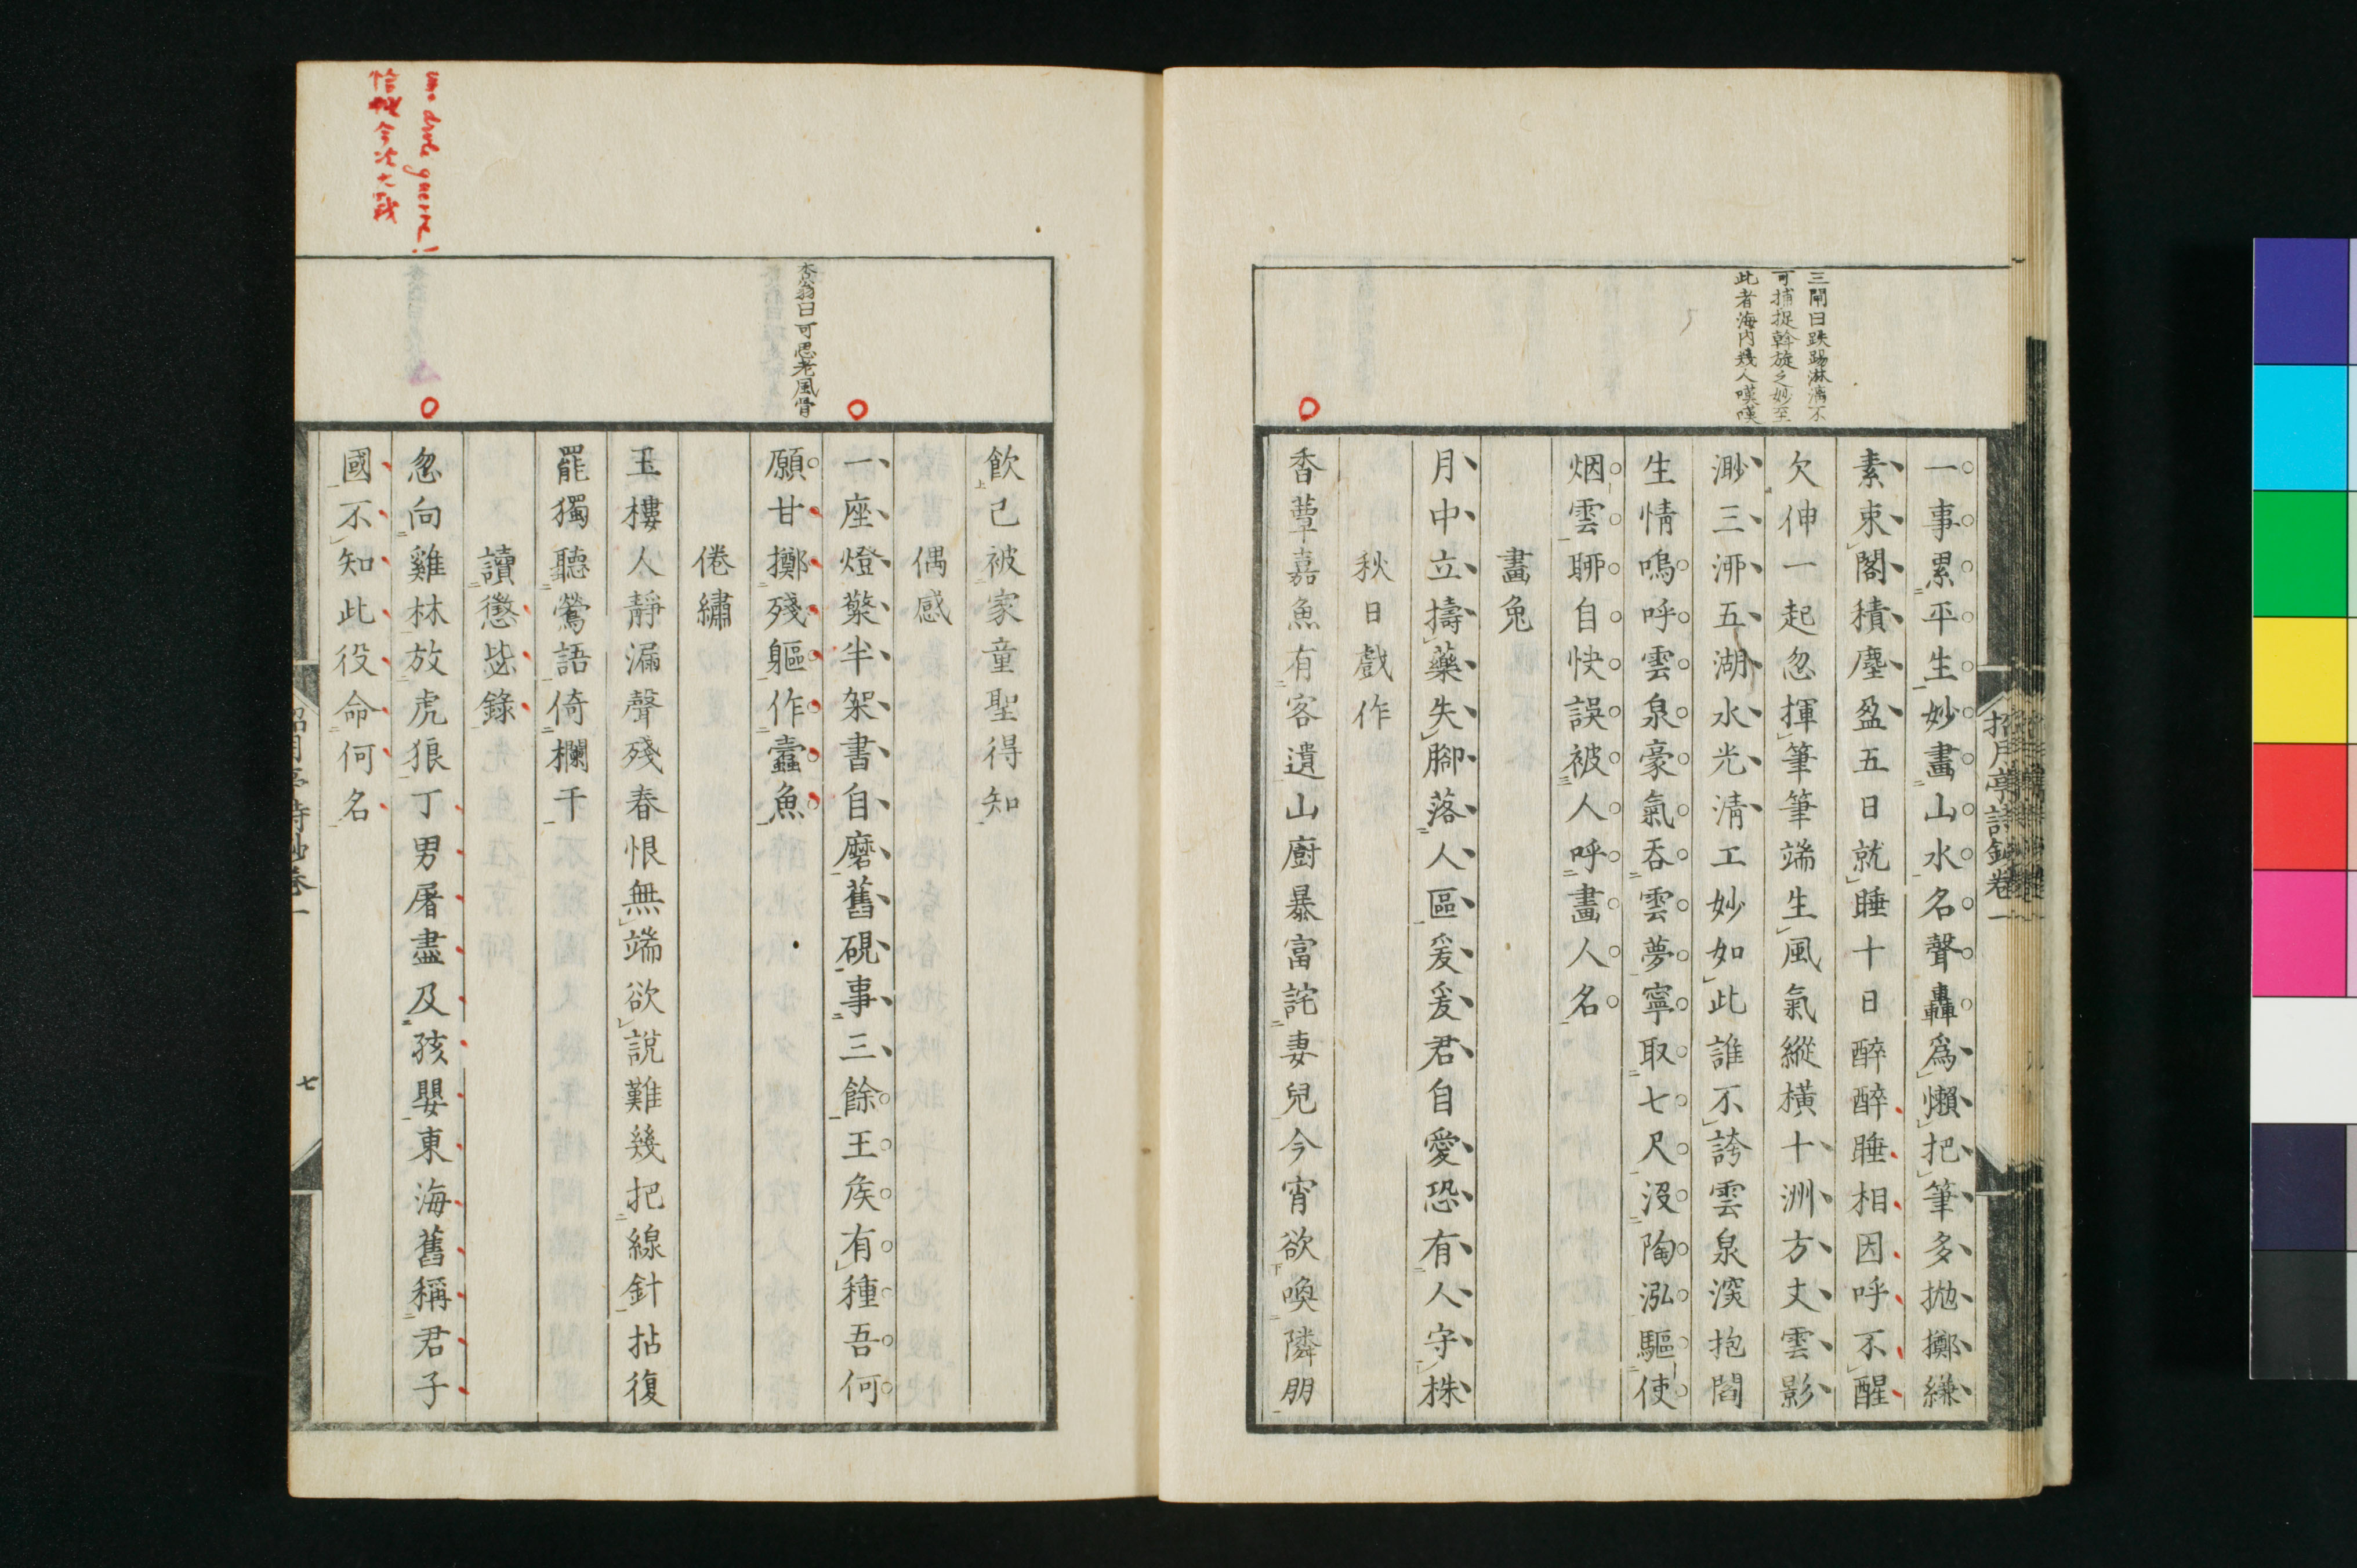 三閘曰跌踢淋漓不
可捕捉斡旋之妙至
此者海内幾人嘆嘆
招月亭詩鈔卷一
一事累平生妙畫山水名聲轟爲懶把筆多拋擲縑
素束閣積塵盈五日就睡十日醉醉睡相因呼不醒
欠伸一起忽揮筆筆端生風氣縱橫十洲方丈雲影
渺三泖五湖水光淸工妙如此誰不誇雲泉深抱閻
生情嗚呼雲泉豪氣吞雲夢寧取七尺沒陶泓驅使
烟雲聊自快誤被人呼畫人名
畫兔
月中立擣藥失腳落人區爰爰君自愛恐有人守株
秋日戲作
香蕈嘉魚有客遺山廚暴富詫妻兒今宵欲喚隣朋
飲己被家童聖得知
偶感
杏翁曰可思老風骨
一座燈檠半架書自磨舊硯事三餘王矦有種吾何
願甘擲殘軀作蠹魚
倦繡
玉樓人靜漏聲殘春恨無端欲說難幾把線針拈復
罷獨聽鶯語倚欄干
讀懲毖錄
忽向雞林放虎狼丁男屠盡及孩嬰東海舊稱君子
國不知此役命何名
guerre!
恰似今次大戰
招月亭詩鈔卷一
七